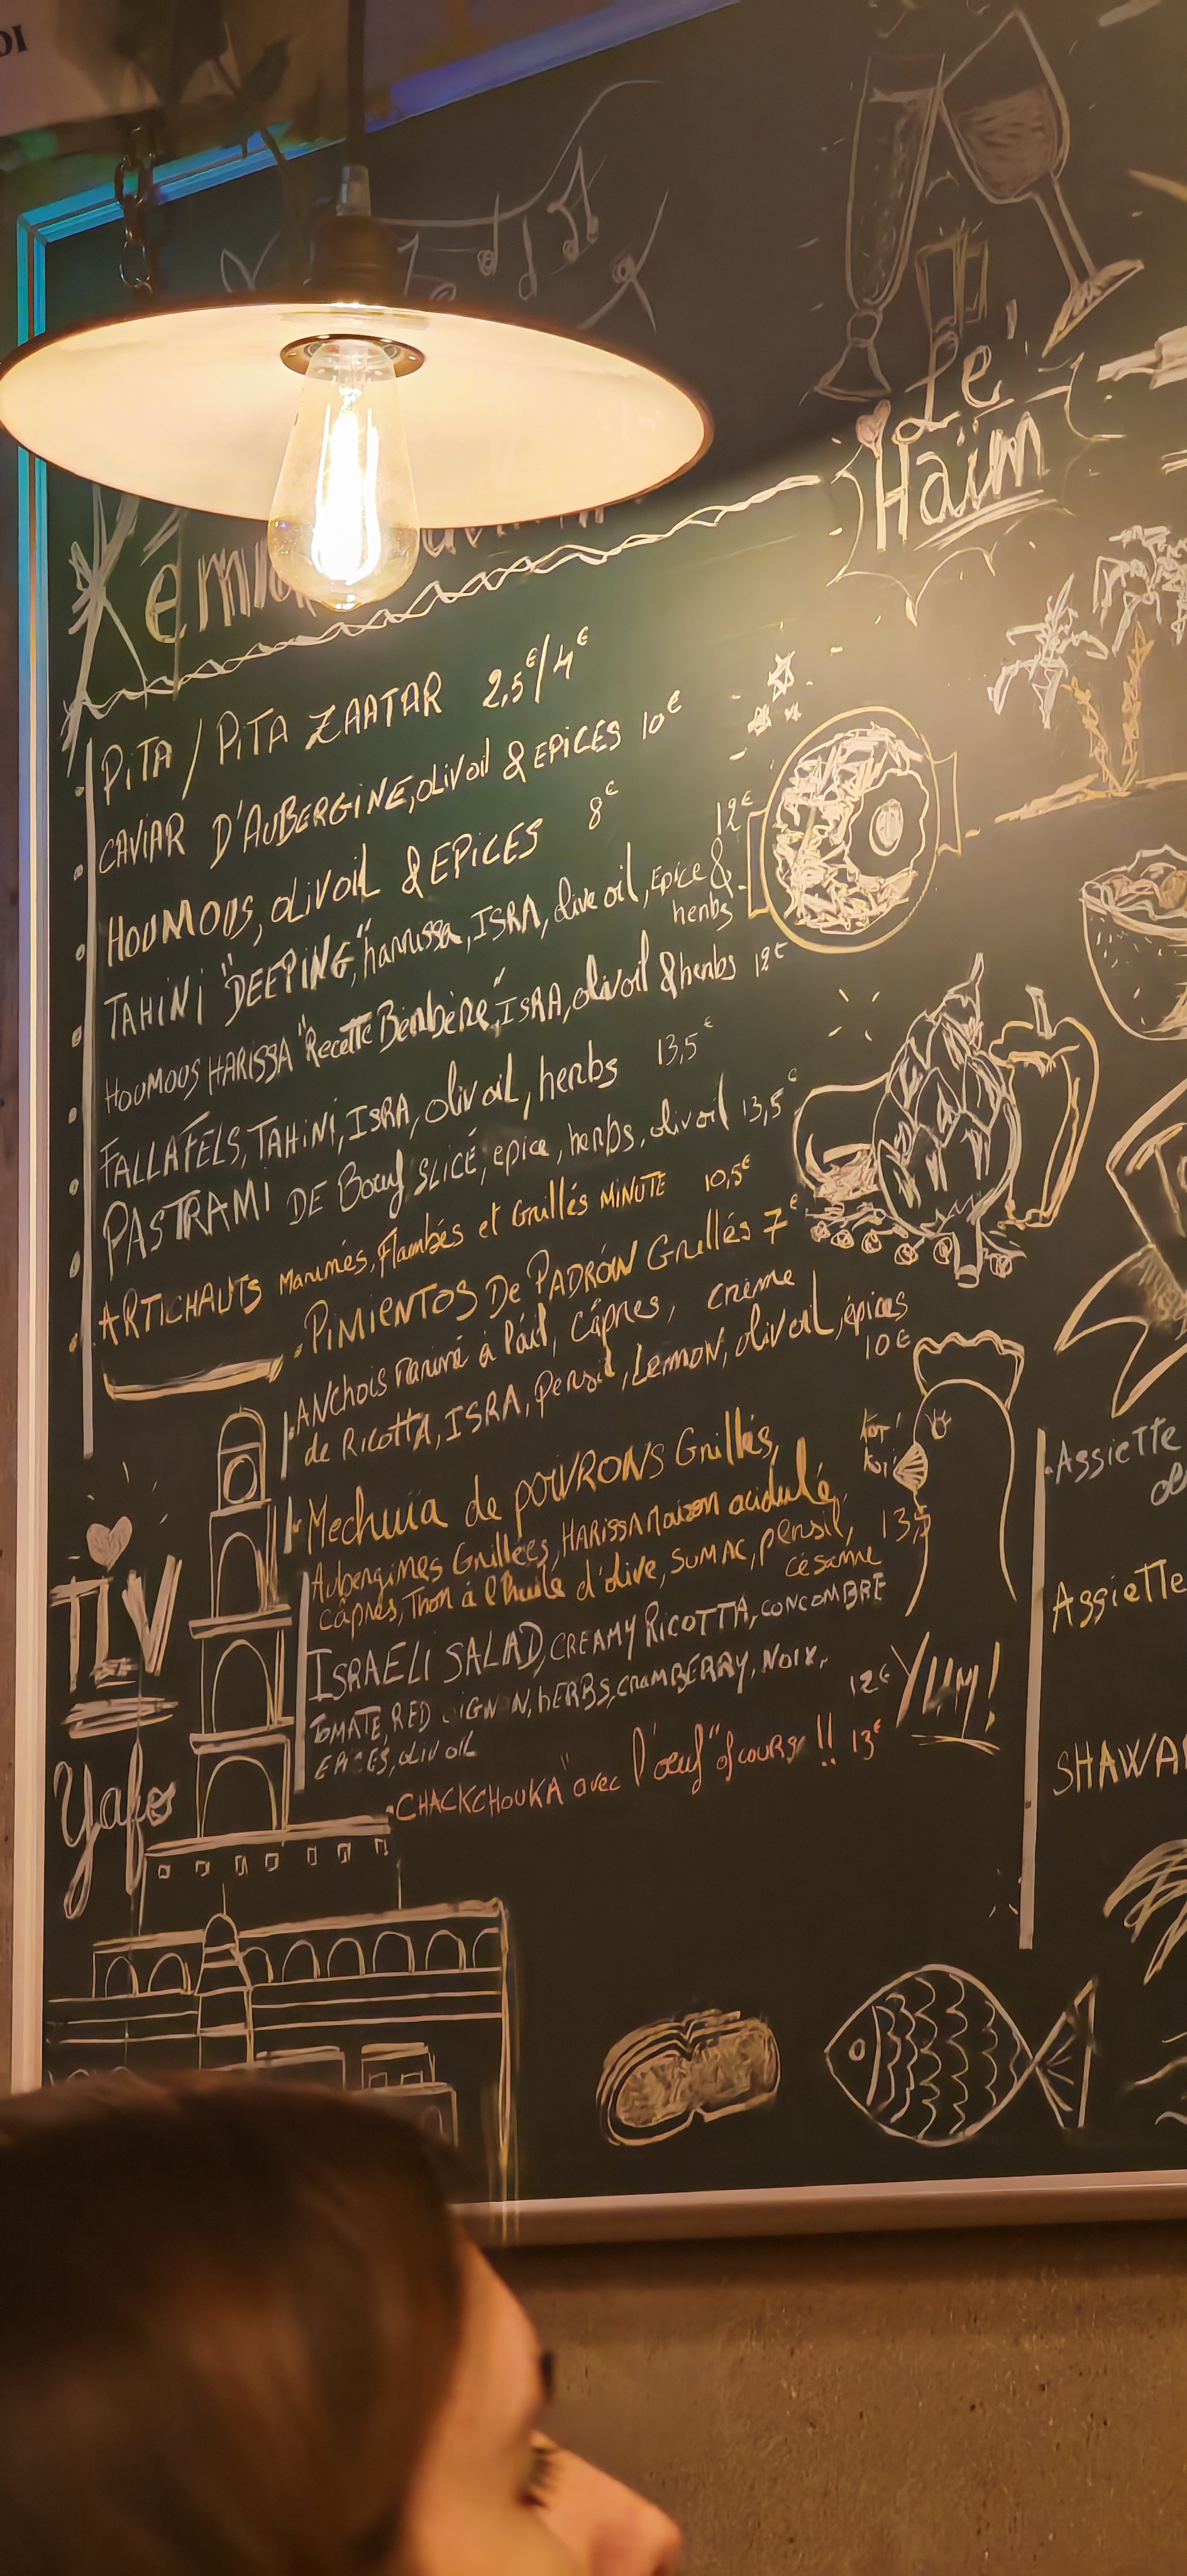 OI
Le
Haïm
PiTA / PiTA ZAATAR 2,5€/4€
CAVIAR D'AUBERGINE, oLiVoil & EPiCES 10€
HOUMOUS, oLiVoiL & EPiCES 8€
TAHiNi "DEEPiNG", harrissa, ISRA, olive oil, Epice & herbs 12€
HOUMOUS HARISSA "Recette Berbère", ISRA, olivoil & herbs 12€
FALLAFELS, TAHiNi, ISRA, oliv oiL, herbs 13,5€
PASTRAMI DE Bœuf SLICÉ, epice, herbs, olivoil 13,5€
ARTICHAUTS Marinés, Flambés et Grillés MiNUTE 10,5€
PiMiENTOS De PADRÓN Grillés 7€
ANchois mariné à l'ail, câpres, crème
de RicoTTA, ISRA, persil, LemoN, olivoil, épices
10€
Mechuia de poiVRONS Grillés,
Aubergines Grillées, HARissA maison acidulé,
câpres, Thon à l'huile d'olive, SUMAC, persil, 13,5
césame
ISRAELi SALAD, CREAMY RicoTTA, coNcoMBRE
ToMATE, RED oiGNoN, hERBS, cramBERRY, Noix,
EPiCES, oliv oil
12€
CHACKCHOUKA "avec l'œuf" of course !! 13€
kot'
kot'
YUM!
TLV
Yafo
Assiette
Assiette
SHAWA